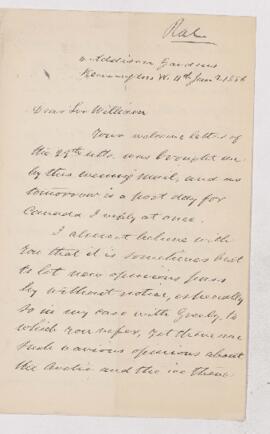 Rae
4 Addison Gardens
Kensington W. 11th Jany 1886
Dear Sir William
Your welcome letter of
the 29th ulto. was brought me
by this evening mail, and as
tomorrow is a post day for
Canada I reply at once.
I almost believe with
you that it is sometimes best
to let new opinions pass
by without notice, especially
so in my case with Greely, to
which you refer, yet there are
such various opinions about
the Arctic and the ice there